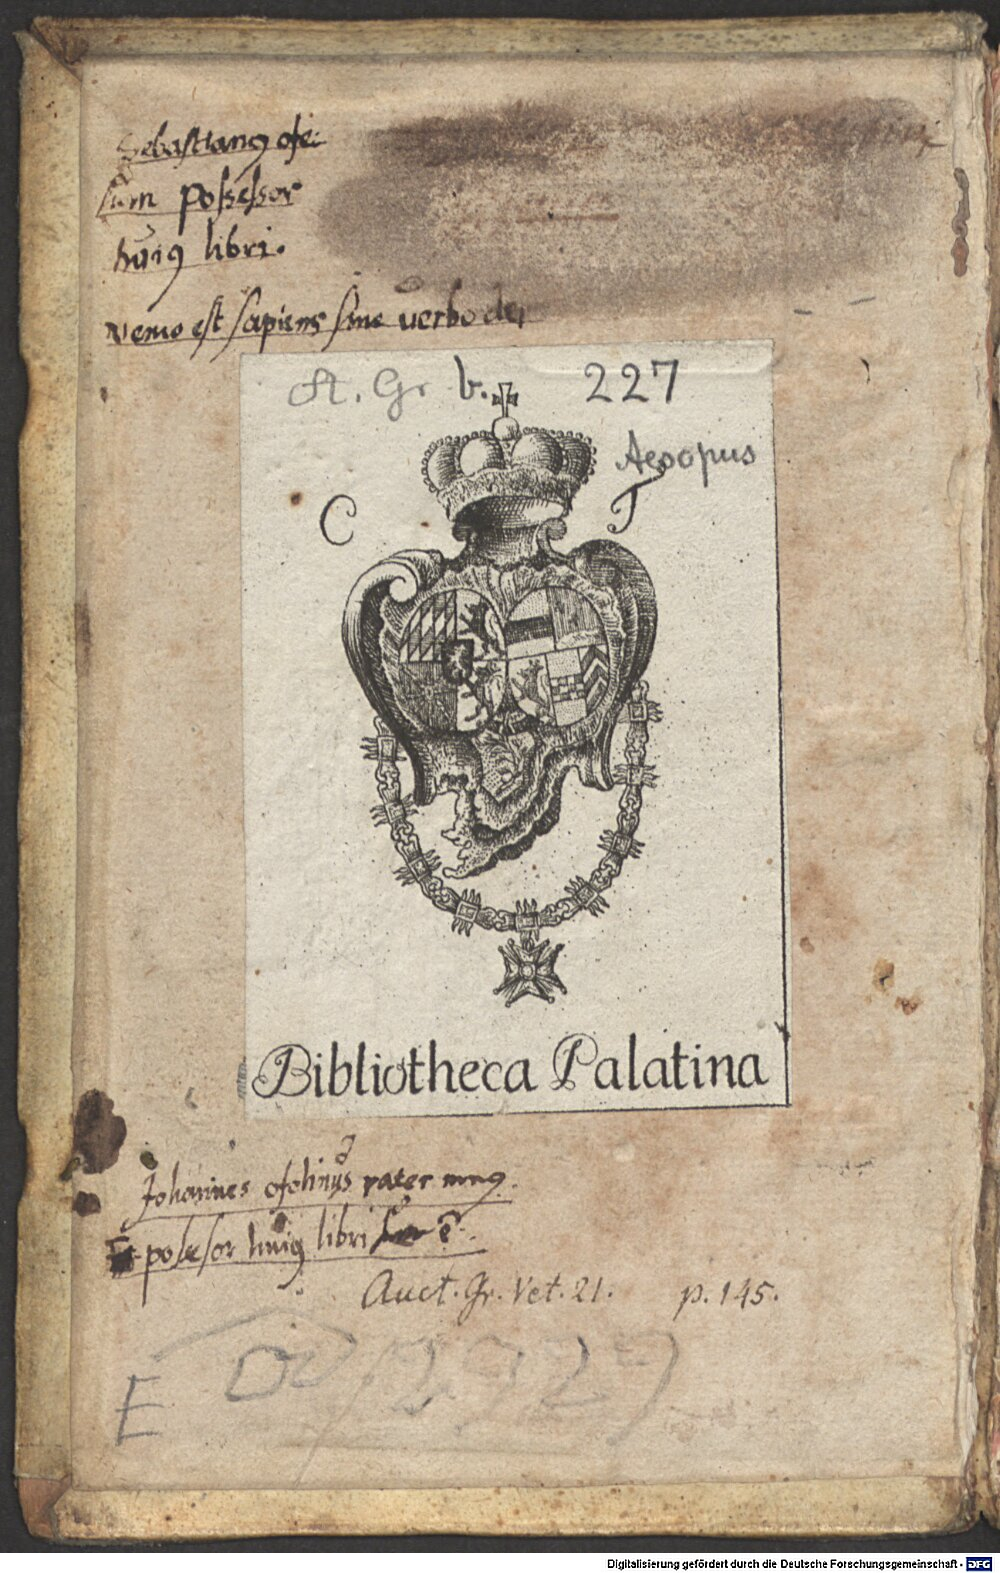 Sebastianꝯ ofe:
sum possessor
huiꝯ libri.
Nemo est sapiens sine verbo dei
A. Gr. b. 227
Aesopus
C T
Bibliotheca Palatina
Johannes pater meꝯ.
possesor huiꝯ libri
Auct. Gr. Vet. 21. p. 145.
E
Digitalisierung gefördert durch die Deutsche Forschungsgemeinschaft - DFG